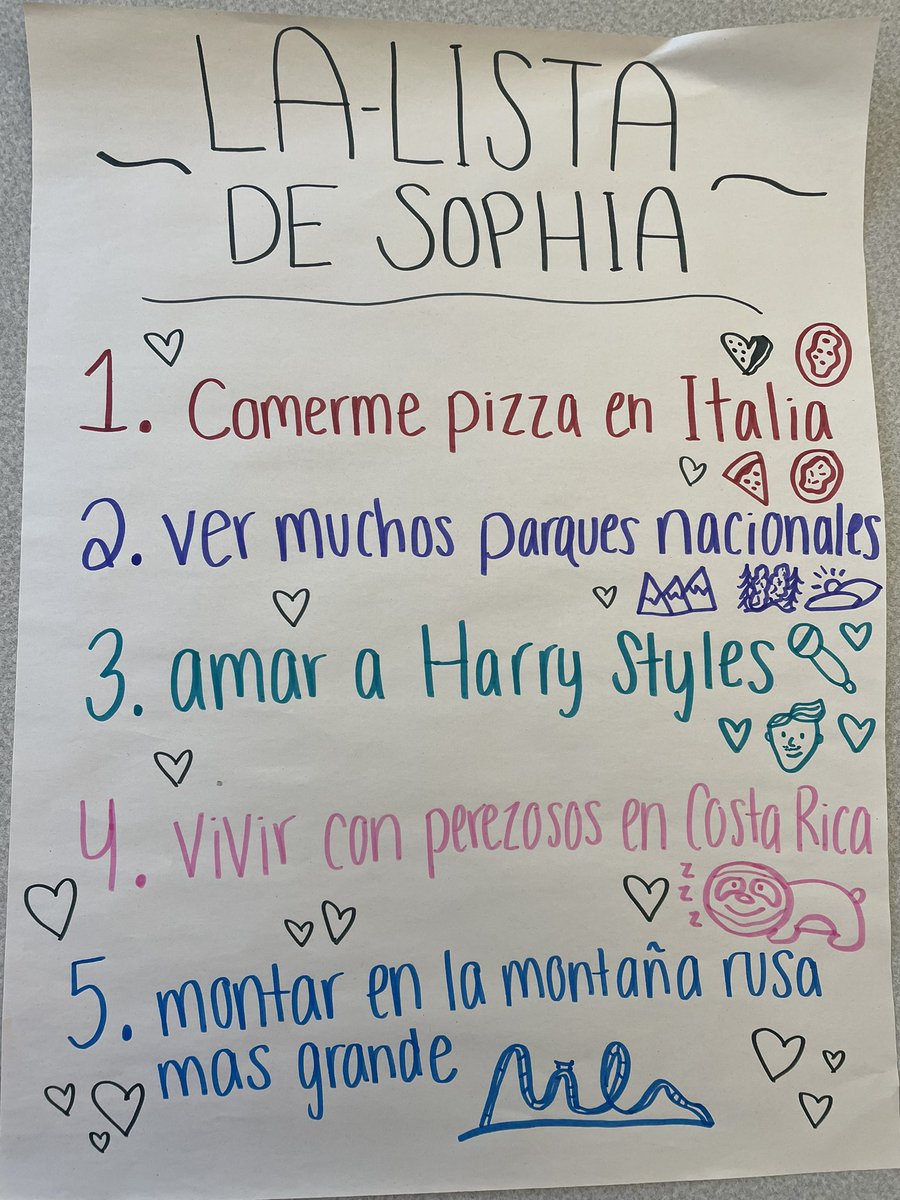 LA-LISTA
DE SOPHIA
1. Comerme pizza en Italia
2. ver muchos parques nacionales
3. amar a Harry Styles
4. vivir con perezosos en Costa Rica
z
z
z
5. montar en la montaña rusa
mas grande